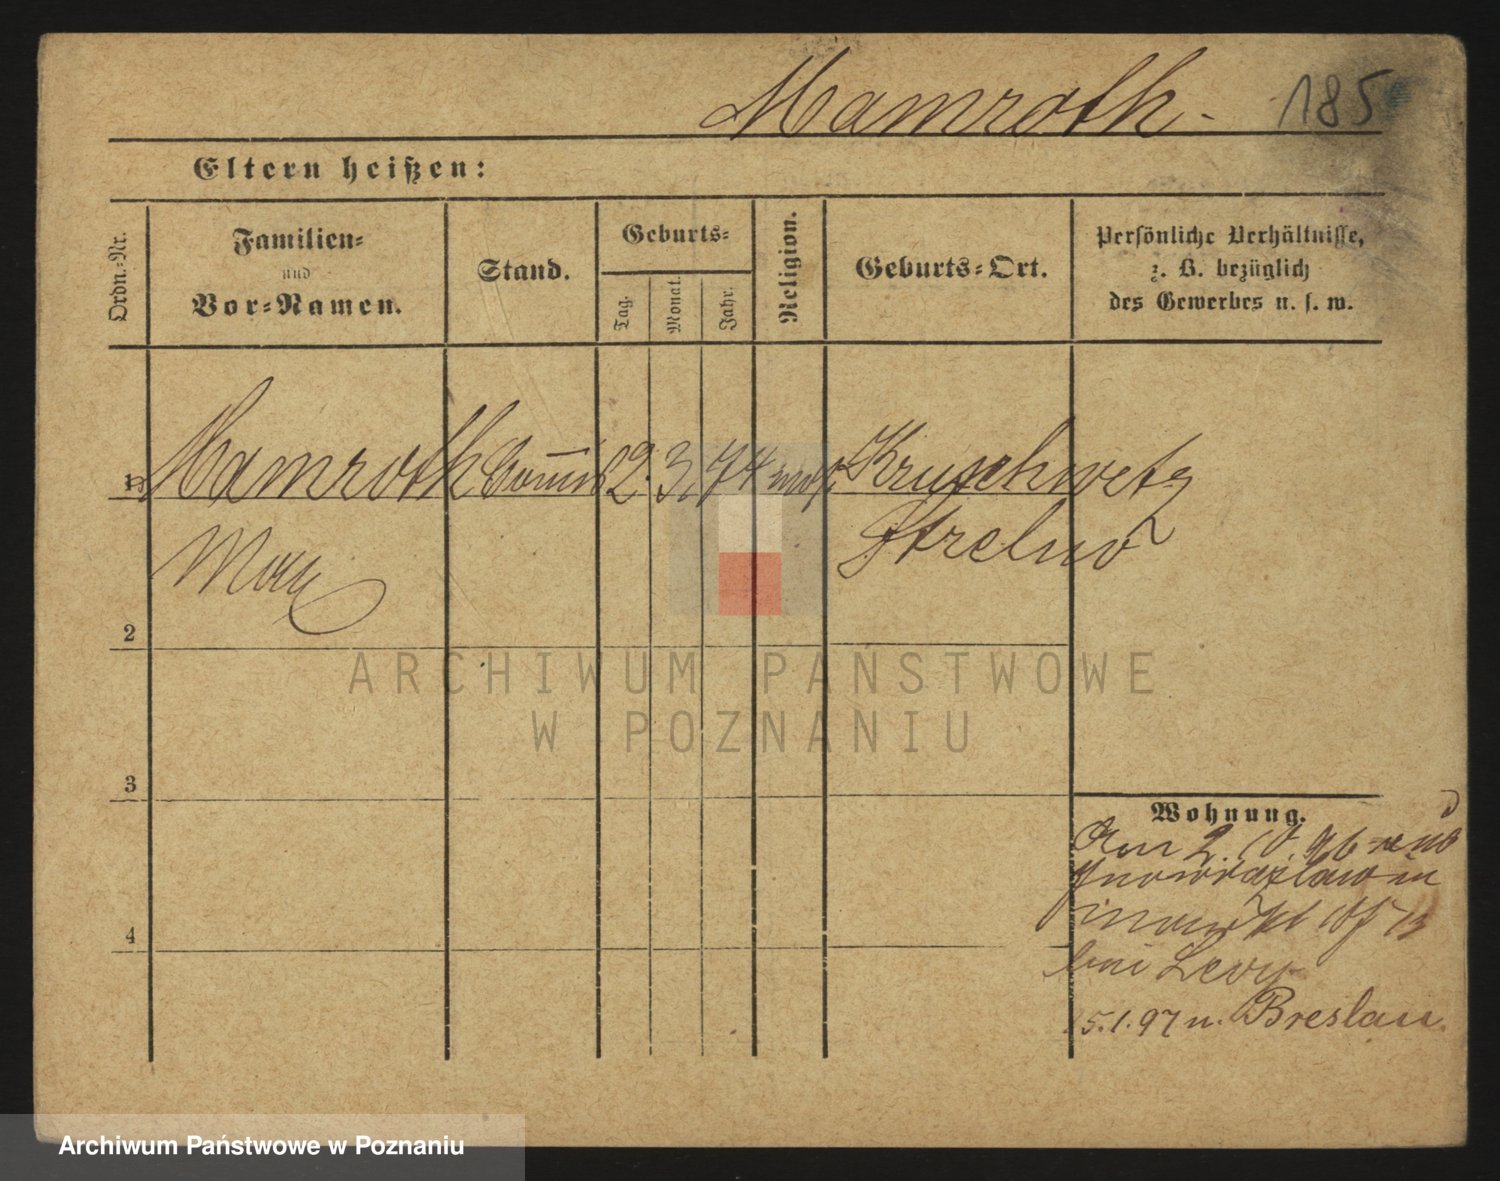 Mamroth. 185
Eltern heißen:
Ordn.-Nr.
Familien-
und
Vor-Namen.
Stand.
Geburts-
Tag.
Monat.
Jahr.
Religion.
Geburts-Ort.
Persönliche Verhältnisse,
z. B. bezüglich
des Gewerbes u. s. w.
1 Mamroth 2. 3. 74 mos. Kruschwitz
Max Strelno
2
ARCHIWUM PAŃSTWOWE
W POZNANIU
3
Wohnung.
Am 2. 10. 96
Inowrazlaw
4
bei Levy
5.1.97 n. Breslau.
Archiwum Państwowe w Poznaniu